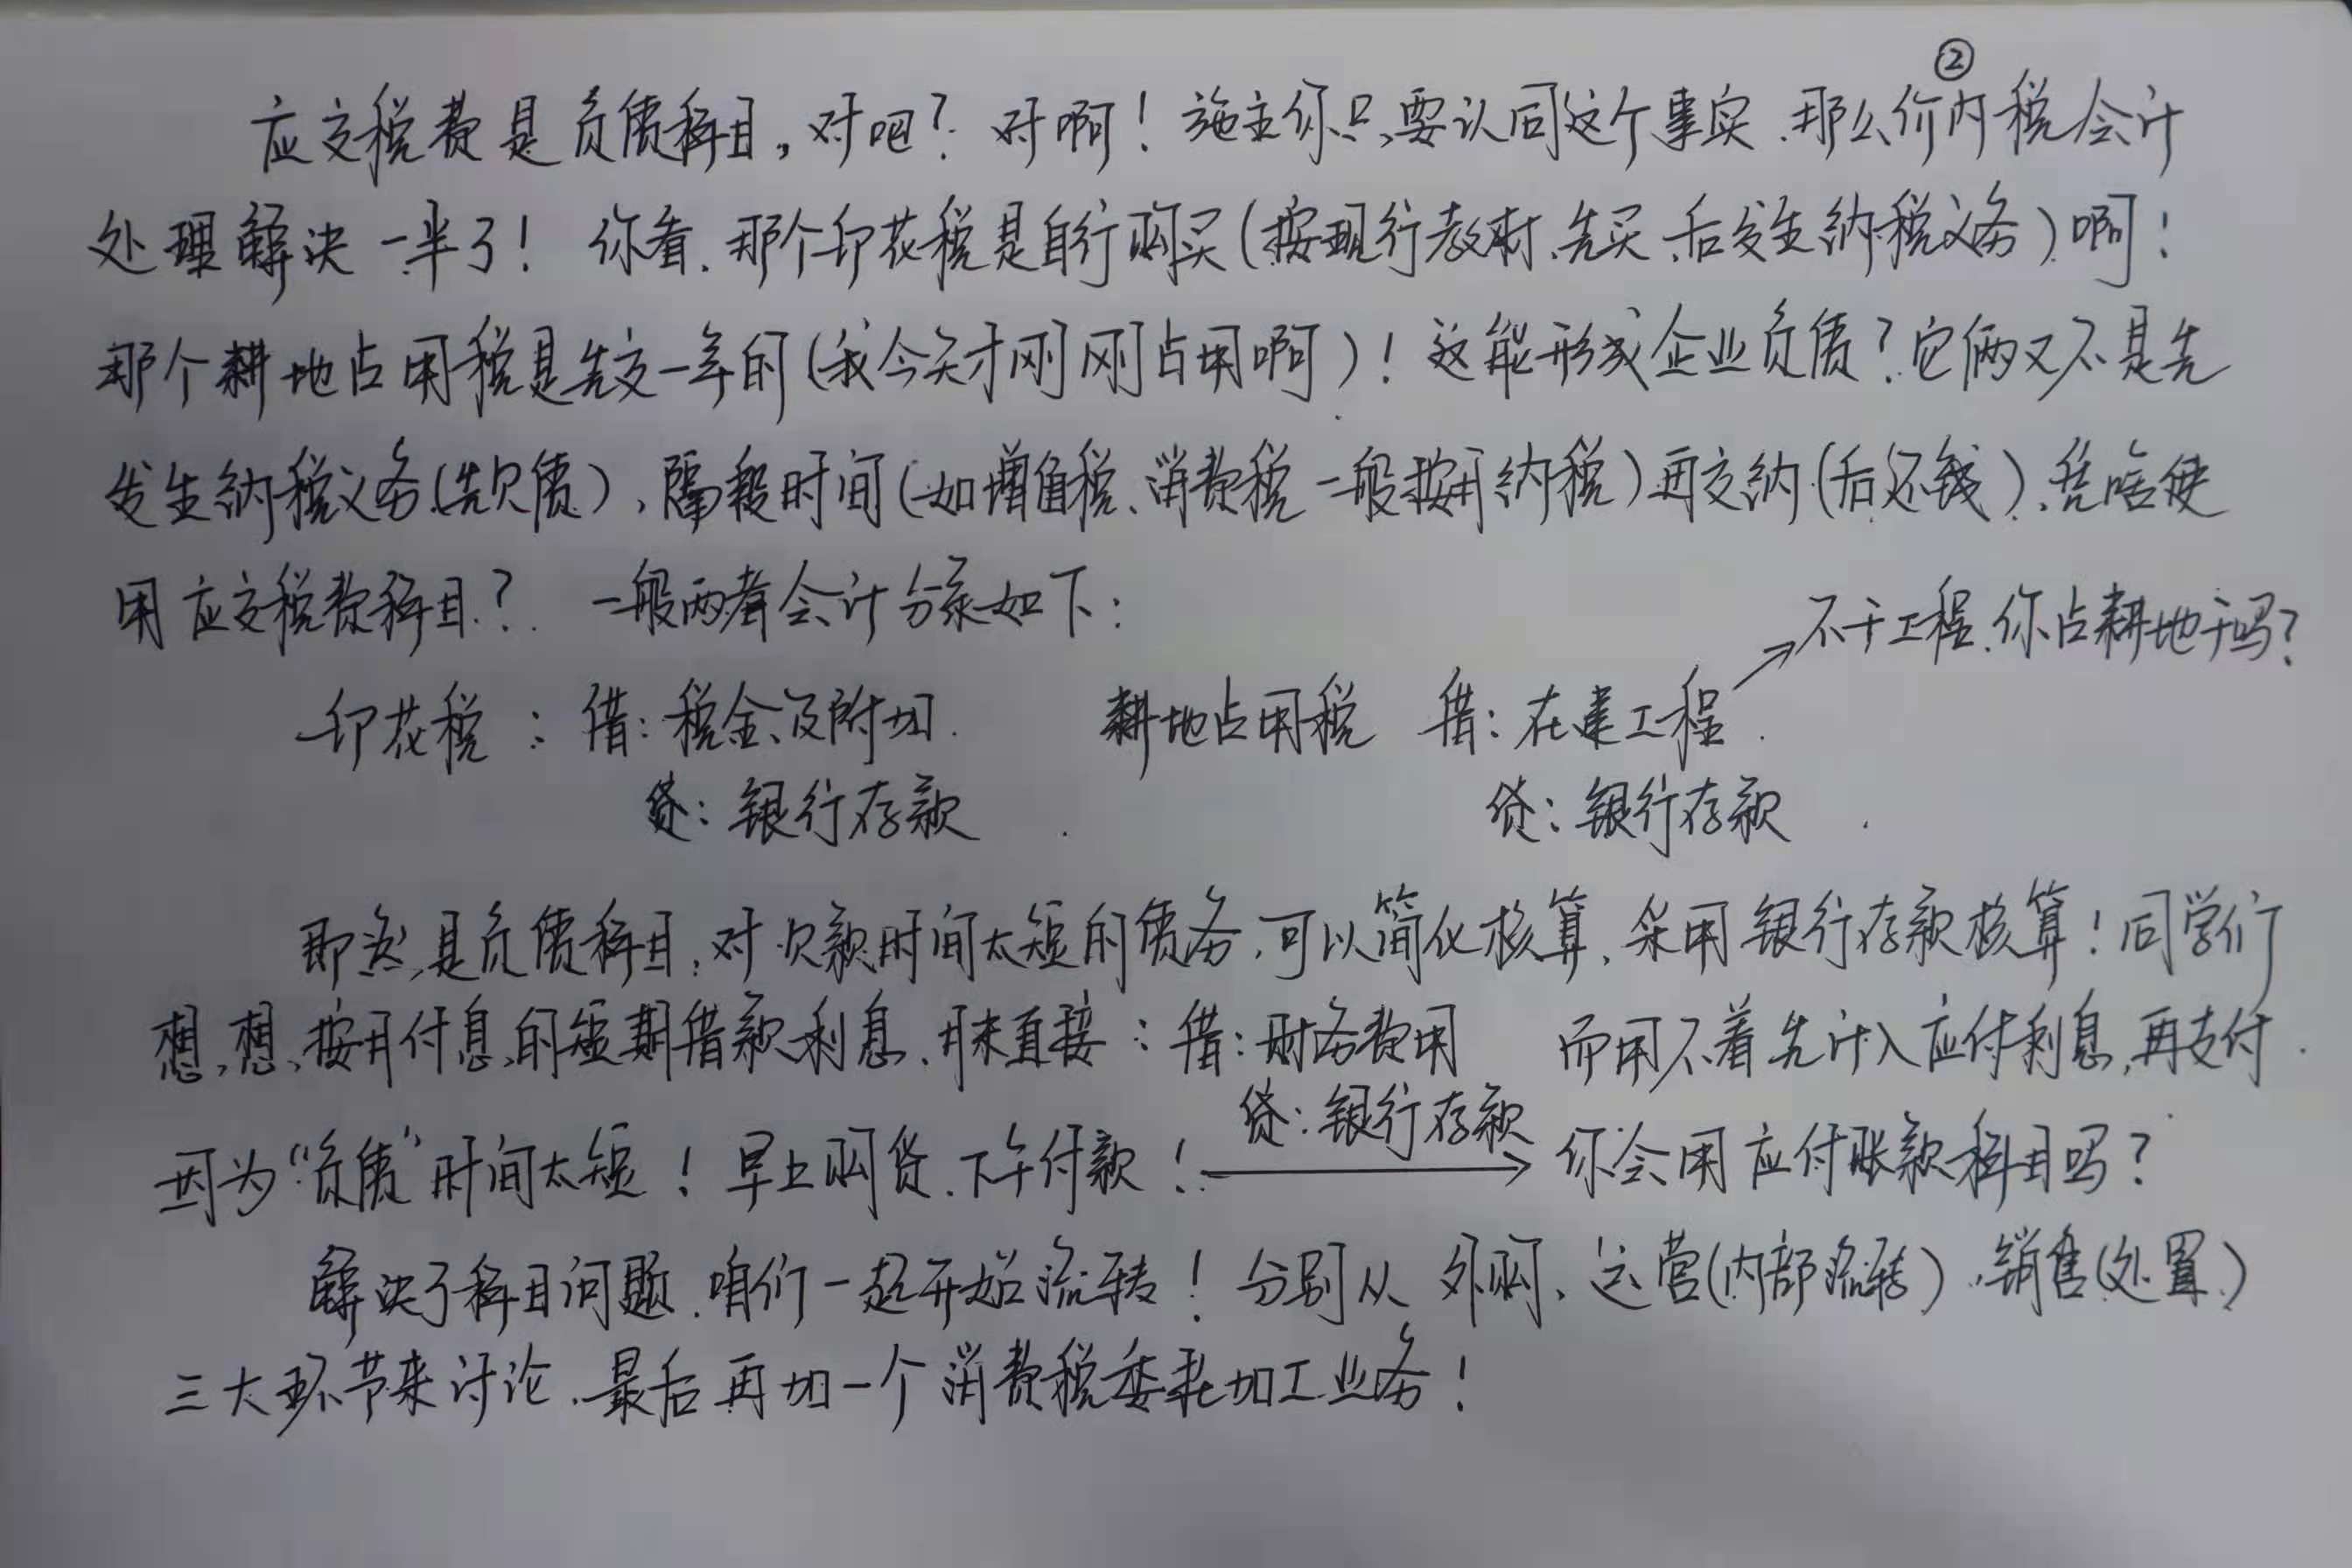 ②
应交税费是负债科目，对吧？对啊！施主你只要认同这个事实、那么价内税会计
处理解决一半了！你看、那个印花税是自行购买（按现行教材、先买、后发生纳税义务）啊！
那个耕地占用税是先交一年的（我今天才刚刚占用啊）！这能形成企业负债？它俩又不是先
发生纳税义务（先欠债）、隔段时间（如增值税、消费税一般按月纳税）再交纳（后还钱）、凭啥使
用应交税费科目？一般两者会计分录如下：
不干工程、你占耕地干吗？
印花税：借：税金及附加. 耕地占用税 借：在建工程.
贷：银行存款. 贷：银行存款.
即然是负债科目，对欠款时间太短的债务、可以简化核算、采用银行存款核算！同学们
想想、按月付息的短期借款利息、月末直接：借：财务费用 而用不着先计入应付利息，再支付.
贷：银行存款
因为“负债”时间太短！早上购货、下午付款！→你会用应付账款科目吗？
解决了科目问题、咱们一起开始流转！分别从 外购、运营（内部流转）、销售（处置）
三大环节来讨论、最后再加一个消费税委托加工业务！